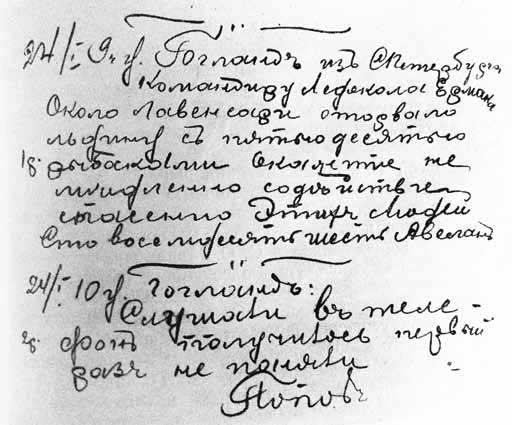 24/I 9 ч. Гогландъ изъ СПетербурга
Командиру Ледокола Ермакъ
Около Лавенсари оторвало
льдину съ пятьюдесятью
рыбаками окажите не
медленно содѣйствіе
спасенію этихъ людей
Сто восемьдесятъ шесть Авеланъ
24/I 10 ч. Гогландъ:
Слушали въ теле-
фонъ получилось первый
разъ не поняли
Поповъ